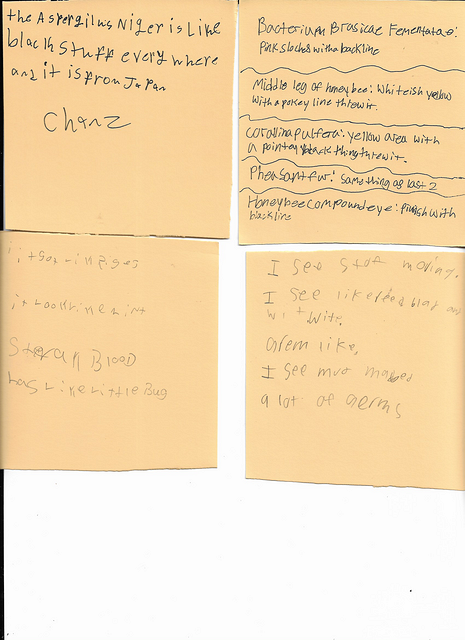 the Aspergilus Niger is Like
black stuff everywhere
and it is from Japan
Chanz
Bacterium Brasicae Fementatae:
Pink sloches with a back line
Middle leg of honey bee: Whiteish yellow
with a pokey line threw it.
corallina pulfera: yellow area with
a pointey black thing threw it.
Pheasant fur: same thing as last 2
Honeybee compound eye: Pinkish with
back line
it Look Like Lint
Blood
has Like Little Bug
I see stof moving.
I see like reed blag and
wit
like,
I see mut
a lot of germs